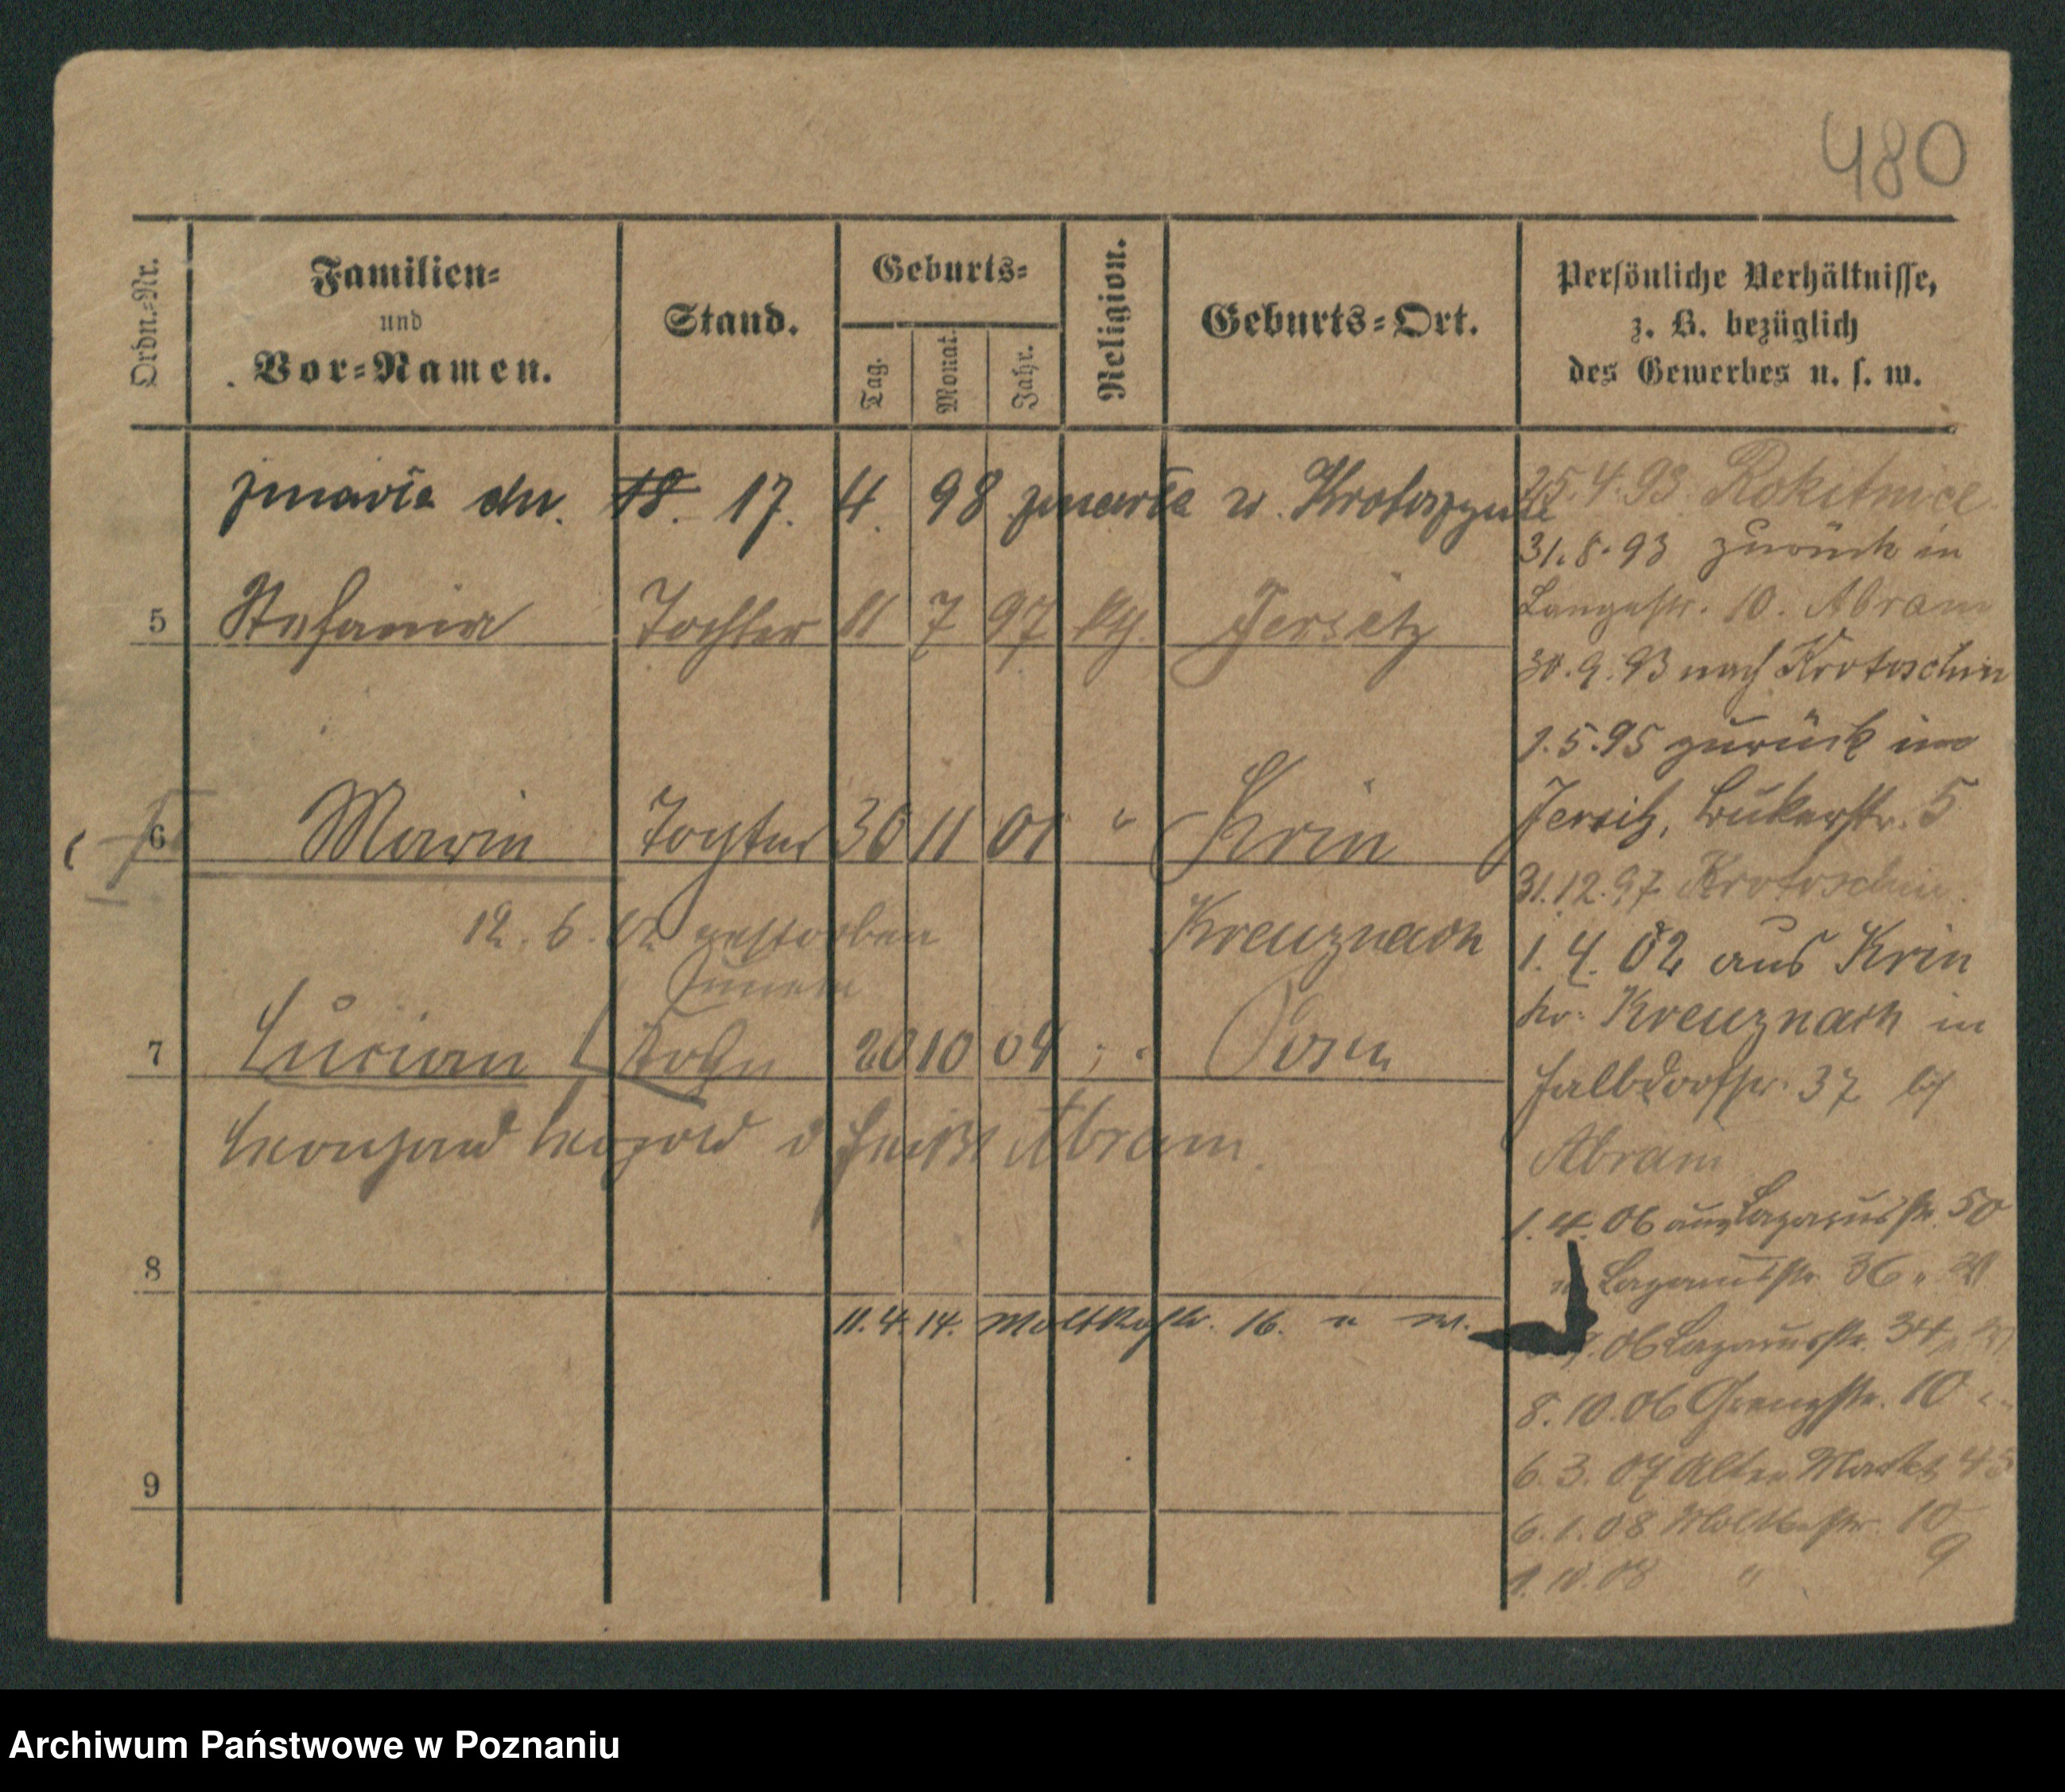 480
Ordn.=Nr.
Familien=
und
Vor=Namen.
Stand.
Geburts=
Tag.
Monat.
Jahr.
Religion.
Geburts=Ort.
Persönliche Verhältnisse,
z. B. bezüglich
des Gewerbes u. s. w.
zmarła dn. 18. 17. 4. 98 zmarła w. Krotoszynie
5 Stefania Tochter 11 7 97 kth. Jersitz
6 Maria Tochter 30 11 01 " Krin
12. 6. 02 gestorben Kreuznach
7 Lucian Sohn 20 10 04 Posen
Leopold Abram.
8
11. 4. 14. Moltkestr. 16.
9
25. 4. 93. Rokitnice
31. 8. 93 zurück in
Langestr. 10. Abram
30. 9. 93 nach Krotoschin
1. 5. 95 zurück in
Jersitz, Bukerstr. 5
31. 12. 97 Krotoschin.
1. 4. 02 aus Krin
Kr. Kreuznach in
37 bei
Abram
1. 4. 06 Lazarusstr. 50
Lazarusstr. 36
06 Lazarusstr. 34
8. 10. 06 Grenzstr. 10
6. 3. 07 Alter Markt 45
6. 1. 08 Moltkestr. 10
1. 10. 08 " 9
Archiwum Państwowe w Poznaniu